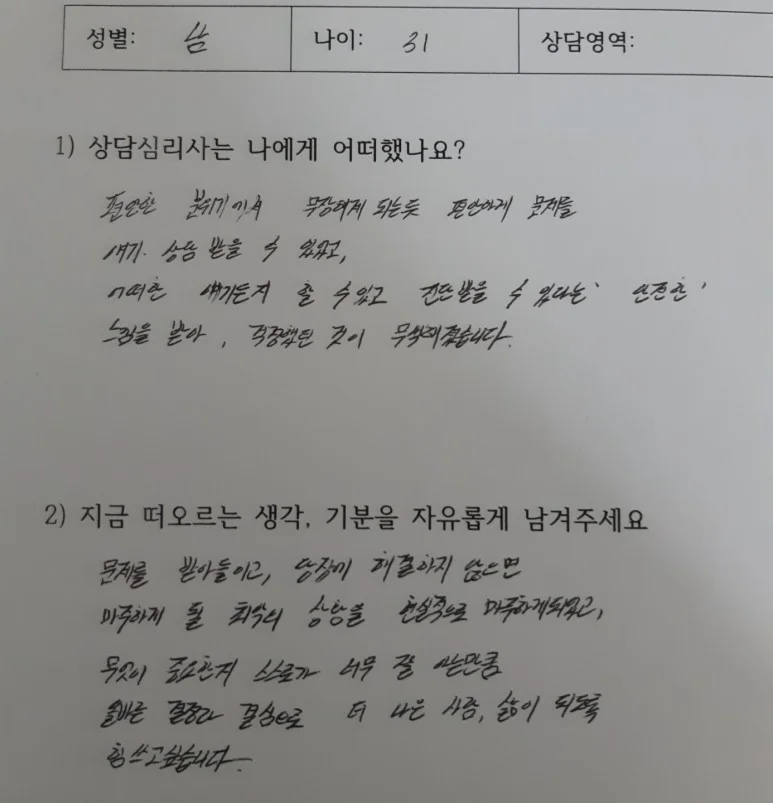 성별: 남 나이: 31 상담영역:
1) 상담심리사는 나에게 어떠했나요?
편안한 분위기에서 무장해제 되는듯 편안하게 문제를
얘기. 상담 받을 수 있었고,
어떠한 얘기든지 할 수 있고 진단받을 수 있다는 '안전한'
느낌을 받아, 걱정했던 것이 무색해졌습니다.
2) 지금 떠오르는 생각, 기분을 자유롭게 남겨주세요
문제를 받아들이고, 당장에 해결하지 않으면
마주하게 될 최악의 상황을 현실적으로 마주하게되었고,
무엇이 중요한지 스스로가 너무 잘 아는만큼
올바른 결정과 결심으로 더 나은 사람, 삶이 되도록
힘쓰고싶습니다.